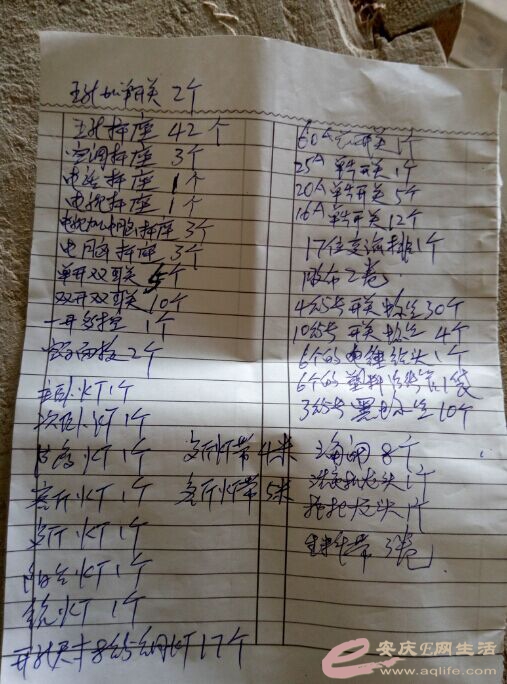 五孔加开关 2个
五孔插座 42个
空调插座 3个
电话插座 1个
电视插座 1个
电视加电脑插座 3个
电脑插座 3个
单开双开关 5个
双开双开关 10个
一开多控 1个
面板 2个
主卧灯 1个
次卧灯 1个
灯 1个 灯带 4米
客厅灯 1个 客厅灯带 5米
灯 1个
阳台灯 1个
灯 1个
开孔尺寸8公分 灯 17个
60A 开关 1个
25A 单开关 1个
20A 单开关 5个
16A 单开关 12个
17位 排 1个
胶布 2卷
4公分 开关 30个
10公分 开关 4个
6个的电锤钻头 1个
6个的塑料 1袋
3公分 黑 10个
角阀 8个
洗衣机龙头 1个
拖把龙头 1个
生料带 3卷
安庆E网生活
www.aqlife.com